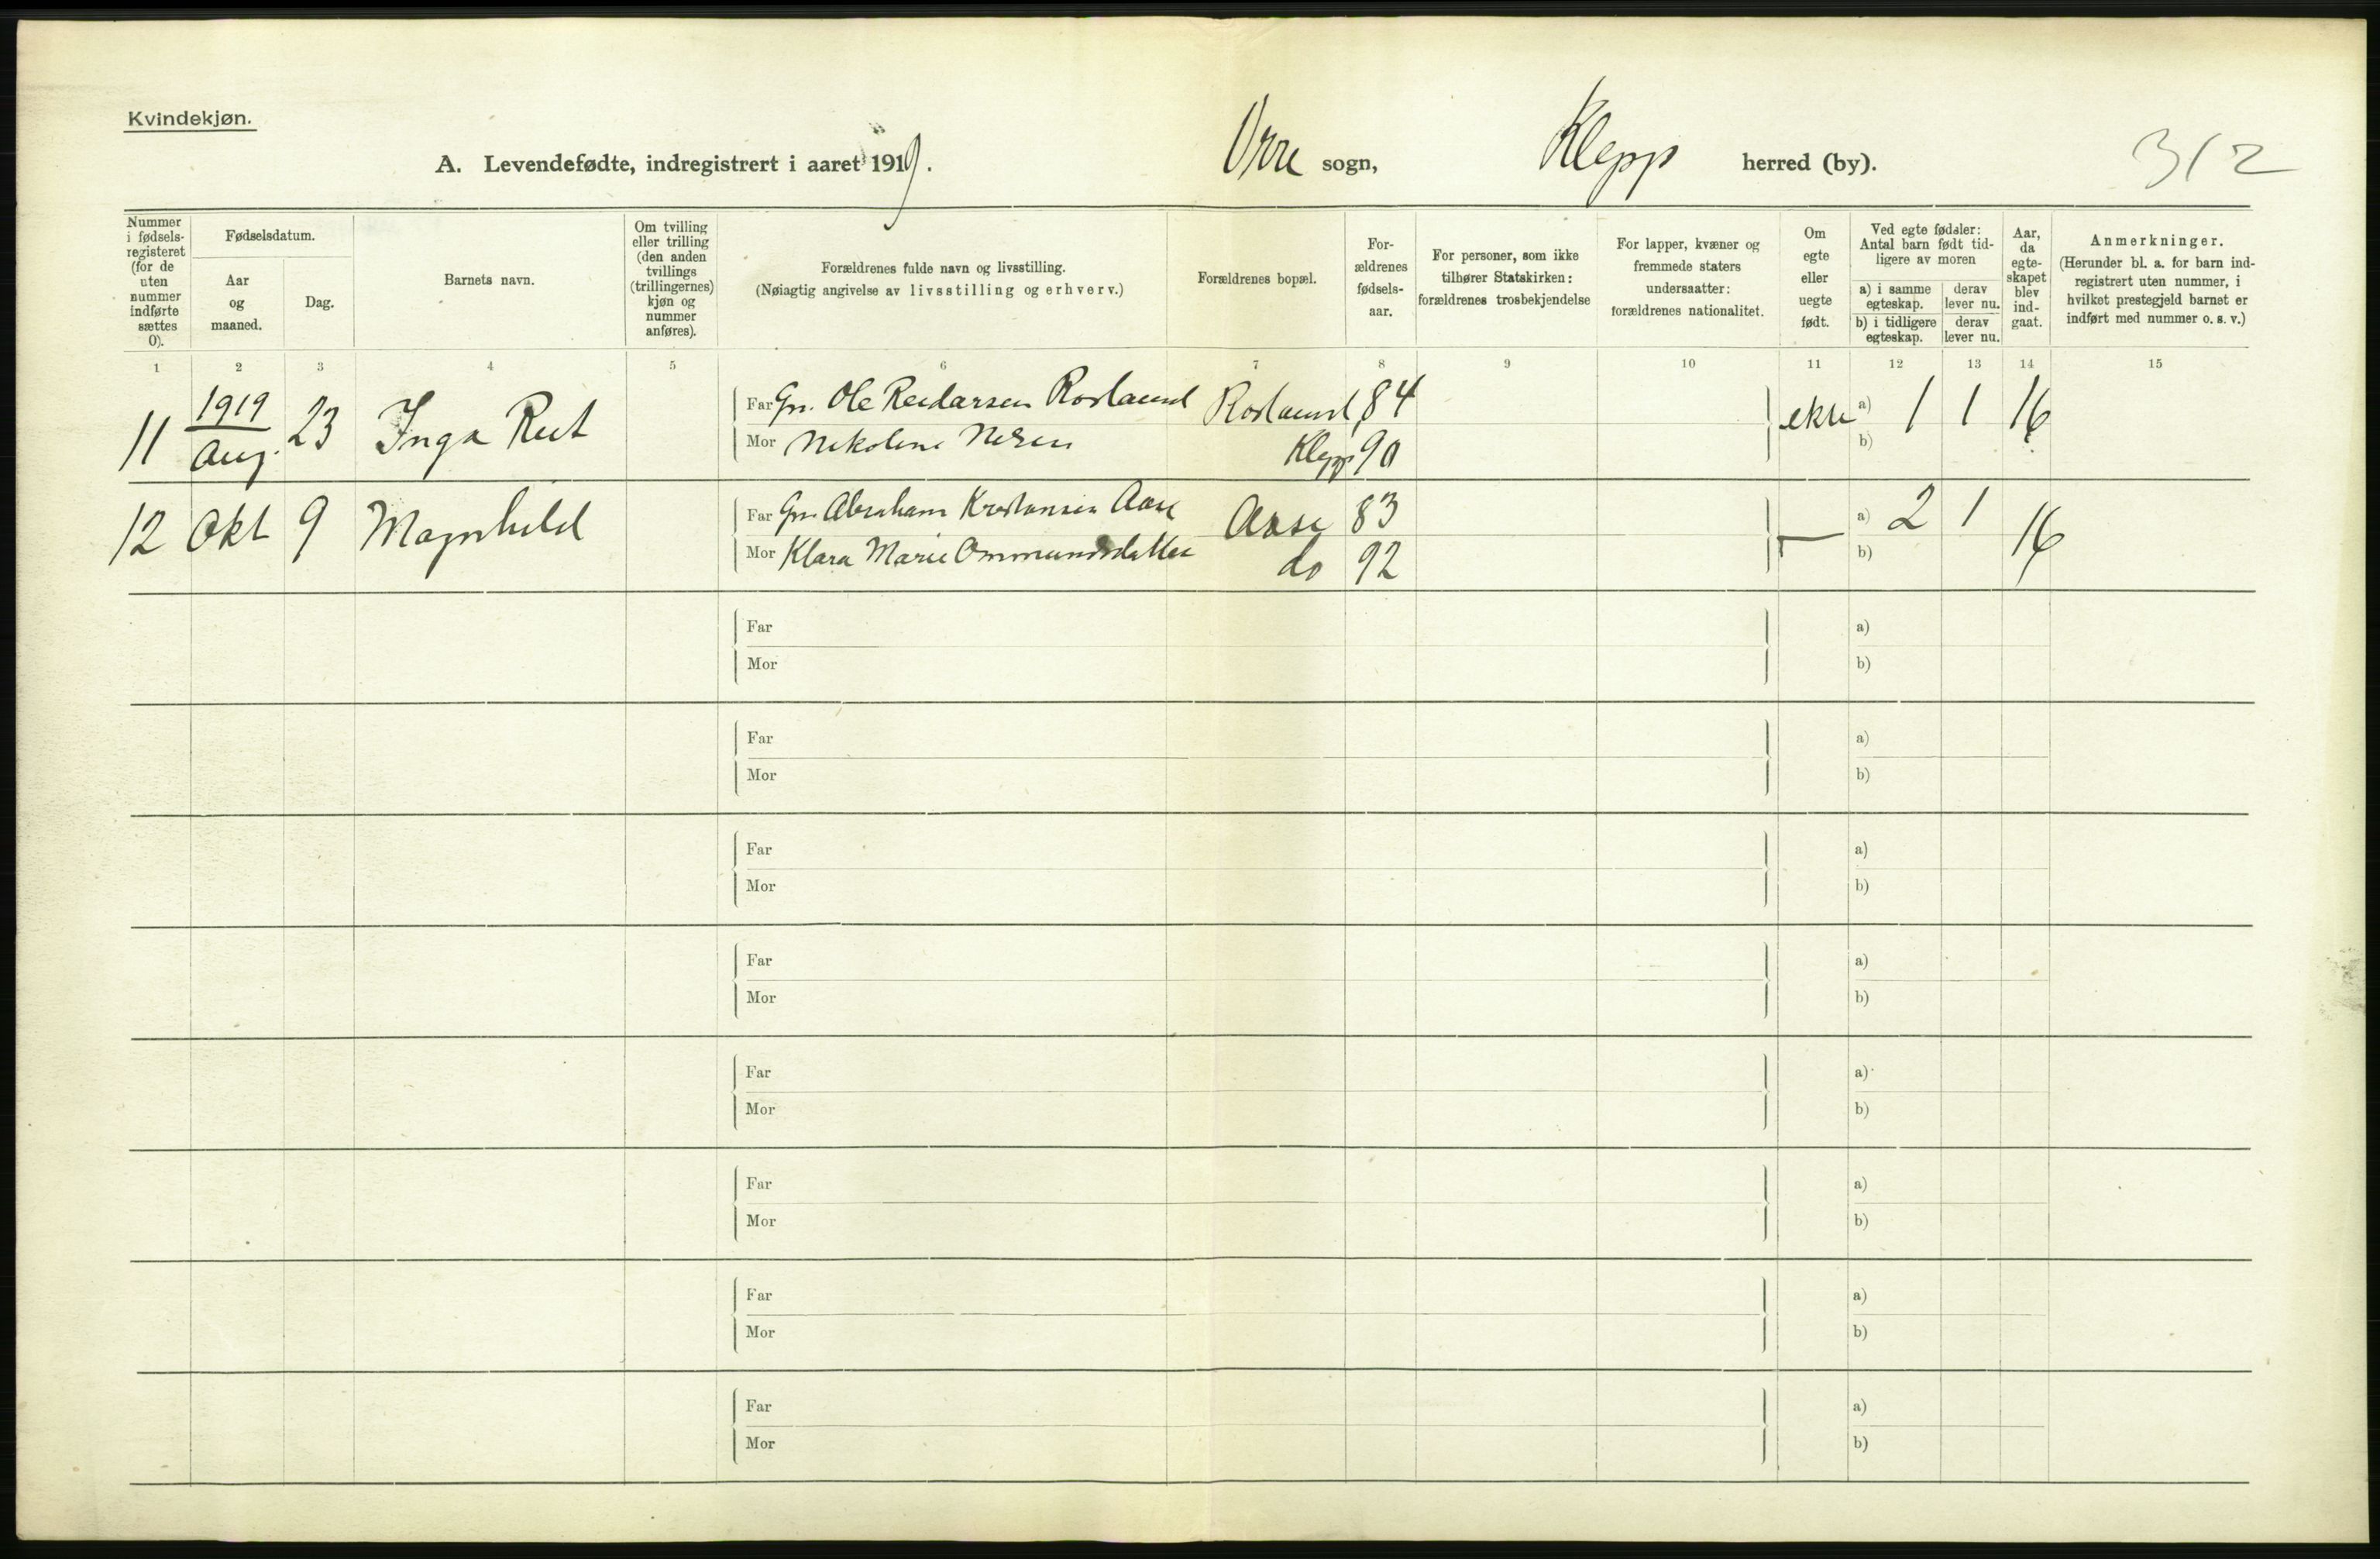 Kvindekjøn.
A. Levendefødte, indregistrert i aaret 1919. Orre sogn, Klepp herred (by). 312
Nummer i fødsels-registeret (for de uten nummer indførte sættes 0).
Fødselsdatum.
Aar og maaned.
Dag.
Barnets navn.
Om tvilling eller trilling (den anden tvillings (trillingernes) kjøn og nummer anføres).
Forældrenes fulde navn og livsstilling.
(Nøiagtig angivelse av livsstilling og erhverv.)
Forældrenes bopæl.
For-ældrenes fødsels-aar.
For personer, som ikke tilhører Statskirken: forældrenes trosbekjendelse
For lapper, kvæner og fremmede staters undersaatter: forældrenes nationalitet.
Om egte eller uegte født.
Ved egte fødsler: Antal barn født tid-ligere av moren
a) i samme egteskap.
derav lever nu.
b) i tidligere egteskap.
derav lever nu.
Aar, da egte-skapet blev ind-gaat.
Anmerkninger.
(Herunder bl. a. for barn ind-registrert uten nummer, i hvilket prestegjeld barnet er indført med nummer o. s. v.)
1 2 3 4 5 6 7 8 9 10 11 12 13 14 15
11 1919 Aug. 23 Inga Rut
Far Gm. Ole Reidarsen Roslaund Roslaund 84 ekte a) 1 1 16
Mor Nikoline Klepp 90 b)
12 Okt 9 Magnhild
Far Gm. Abraham Kristiansen Aase Aase 83 a) 2 1 16
Mor Klara Marie Ommundsdatter do 92 b)
Far a)
Mor b)
Far a)
Mor b)
Far a)
Mor b)
Far a)
Mor b)
Far a)
Mor b)
Far a)
Mor b)
Far a)
Mor b)
Far a)
Mor b)